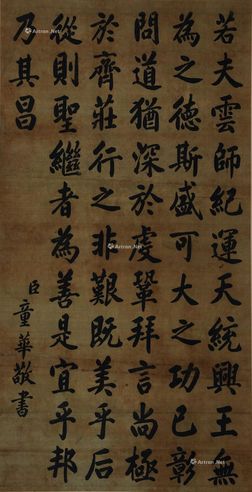 若夫雲師紀運天統興王無
為之德斯盛可大之功已彰
問道猶深於虔鞏拜言尚極
於齊莊行之非艱既美乎后
從則聖繼者為善是宜乎邦
乃其昌
臣童華敬書
Artron.Net